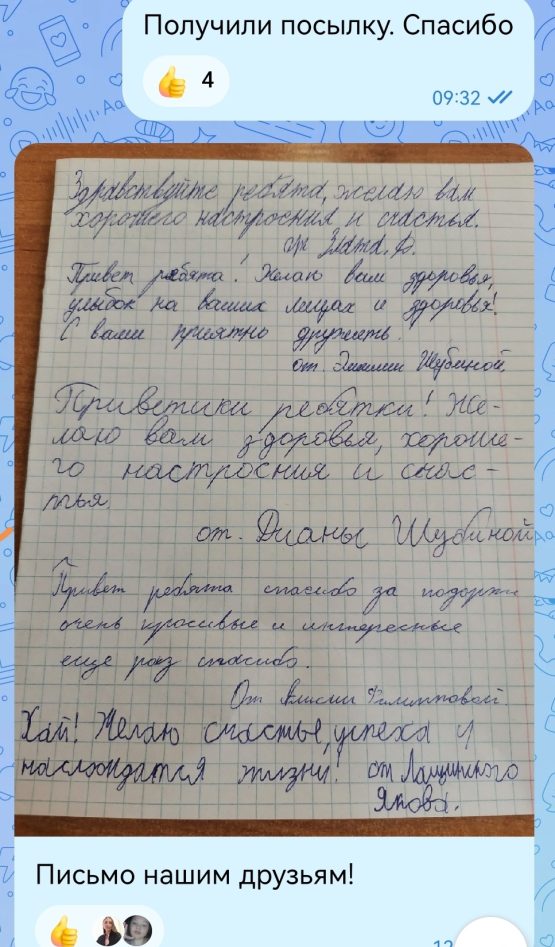 Получили посылку. Спасибо
👍 4
09:32
Здравствуйте ребята, желаю вам
хорошего настроения и счастья.
от Злата. Д.
Привет ребята! Желаю вам здоровья,
улыбок на ваших лицах и здоровья!
С вами приятно дружить.
от. Эмилии Шубиной
Приветики ребятки! Же-
лаю вам здоровья, хороше-
го настроения и счас-
тья.
от. Дианы Шубиной
Привет ребята спасибо за подарки
очень красивые и интересные
еще раз спасибо.
От Алисии Филипповой.
Хай! Желаю счастье, успеха и
наслаждатся жизни! от Лащинского
Якова.
Письмо нашим друзьям!
12